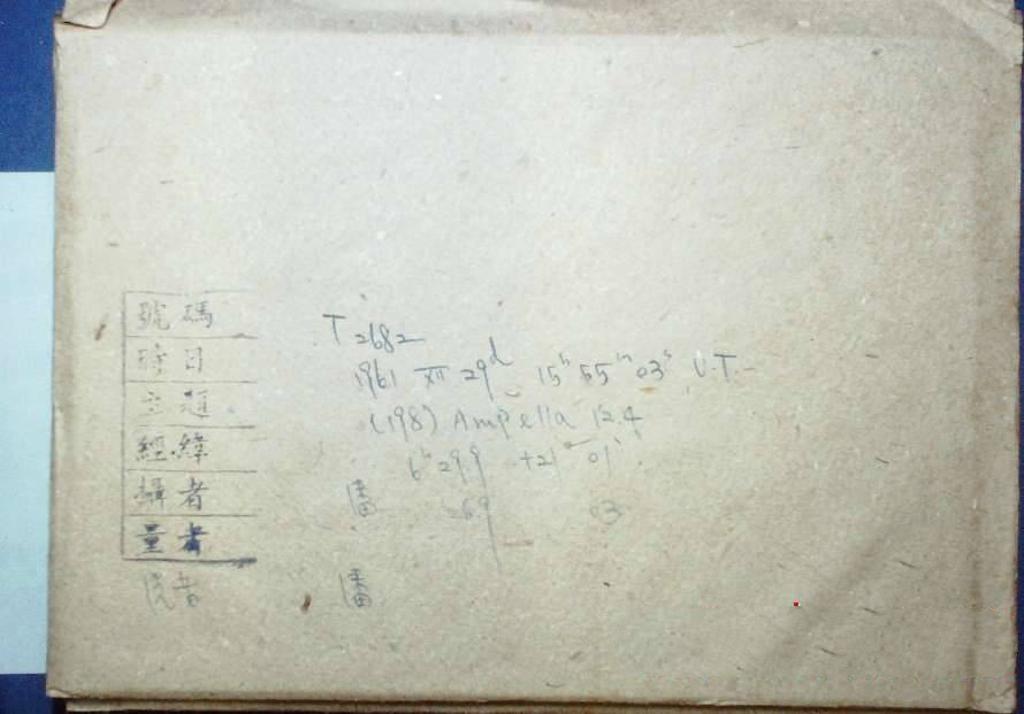 號碼 T 2682
時日 1961 XII 29d 15h 55m 03s U.T.
主題 (198) Ampella 12.4
經緯 6h 29.9 +21° 01'
攝者 潘 69 03
量者
潘